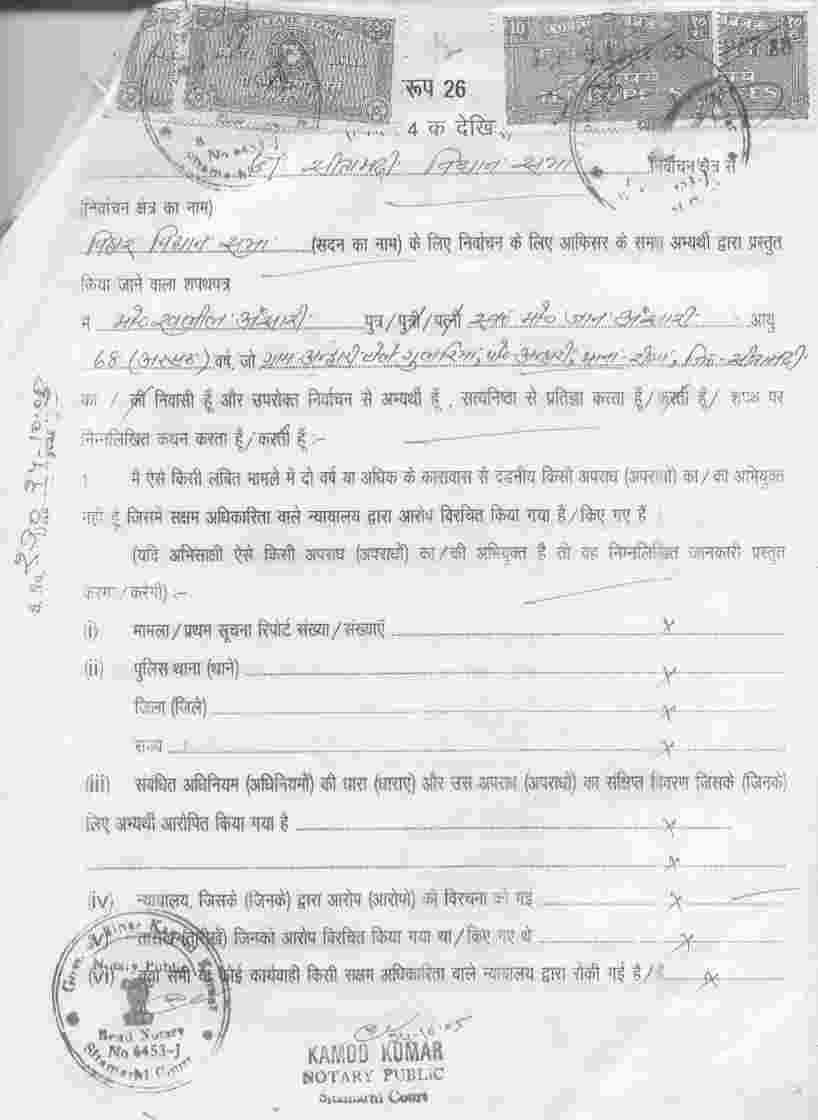 WELFARE STAMP
10
TEN RUPEES
रूप 26
4 क देखि
सीतामढ़ी विधान सभा निर्वाचन क्षेत्र से
(निर्वाचन क्षेत्र का नाम)
बिहार विधान सभा (सदन का नाम) के लिए निर्वाचन के लिए आफिसर के समक्ष अभ्यर्थी द्वारा प्रस्तुत
किया जाने वाला शपथपत्र
मै मो० खलील अंसारी पुत्र/पुत्री/पत्नी स्व० मो० जान अंसारी आयु
68 (अरसठ) वर्ष, जो ग्राम
का / की निवासी हूँ और उपरोक्त निर्वाचन से अभ्यर्थी हूँ , सत्यनिष्ठा से प्रतिज्ञा करता हूँ/करती हूँ/ शपथ पर
निम्नलिखित कथन करता हूँ/करती हूँ :-
1 मै ऐसे किसी लंबित मामले में दो वर्ष या अधिक के कारावास से दंडनीय किसी अपराध (अपराधो) का/का अभियुक्त
नही हूँ जिसमें सक्षम अधिकारिता वाले न्यायालय द्वारा आरोप विरचित किया गया हैं/किए गए हैं ।
(यदि अभिसाक्षी ऐसे किसी अपराध (अपराधों) का/की अभियुक्त है तो वह निम्नलिखित जानकारी प्रस्तुत
करेगा/करेगी) :-
(i) मामला/प्रथम सूचना रिपोर्ट संख्या/संख्याएँ x
(ii) पुलिस थाना (थाने) x
जिला (जिले) x
राज्य x
(iii) संबंधित अधिनियम (अधिनियमों) की धारा (धाराएं) और उस अपराध (अपराधो) का संक्षिप्त विवरण जिसके (जिनके)
लिए अभ्यर्थी आरोपित किया गया है x
x
(iv) न्यायालय, जिसके (जिनके) द्वारा आरोप (आरोपो) की विरचना की गई x
(v) तारीख (तारीखें) जिनको आरोप विरचित किया गया था/किए गए थे x
(vi) क्या सभी या कोई कार्यवाही किसी सक्षम अधिकारिता वाले न्यायालय द्वारा रोकी गई है/ x
Notary Public
Read Notary
No 6453-J
Sitamarhi Court
KAMOD KUMAR
NOTARY PUBLIC
Sitamarhi Court